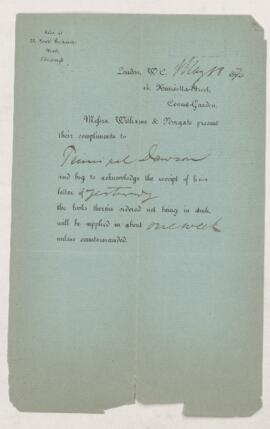 Also at
20, South Frederick
Street,
Edinburgh
London, W.C. 187
14, Henrietta-Street,
Covent-Garden.
Messrs. Williams & Norgate present
their compliments to
Principal Dawson
and beg to acknowledge the receipt of his
letter of yesterday
the books therein ordered not being in stock,
will be supplied in about one week
unless countermanded.